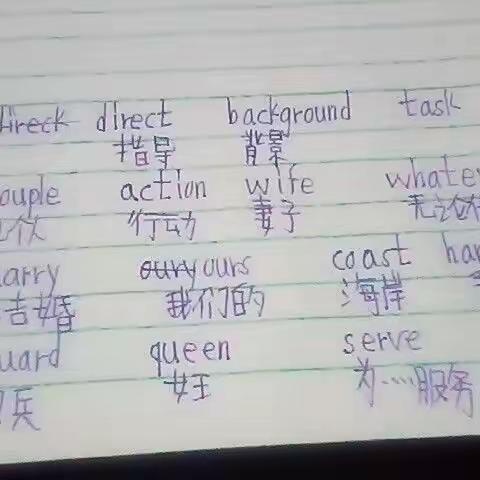 direct background task
指导 背景
ouple action wife whate
行动 妻子 无论
arry ours coast ha
结婚 我们的 海岸
uard queen serve
兵 女王 为……服务